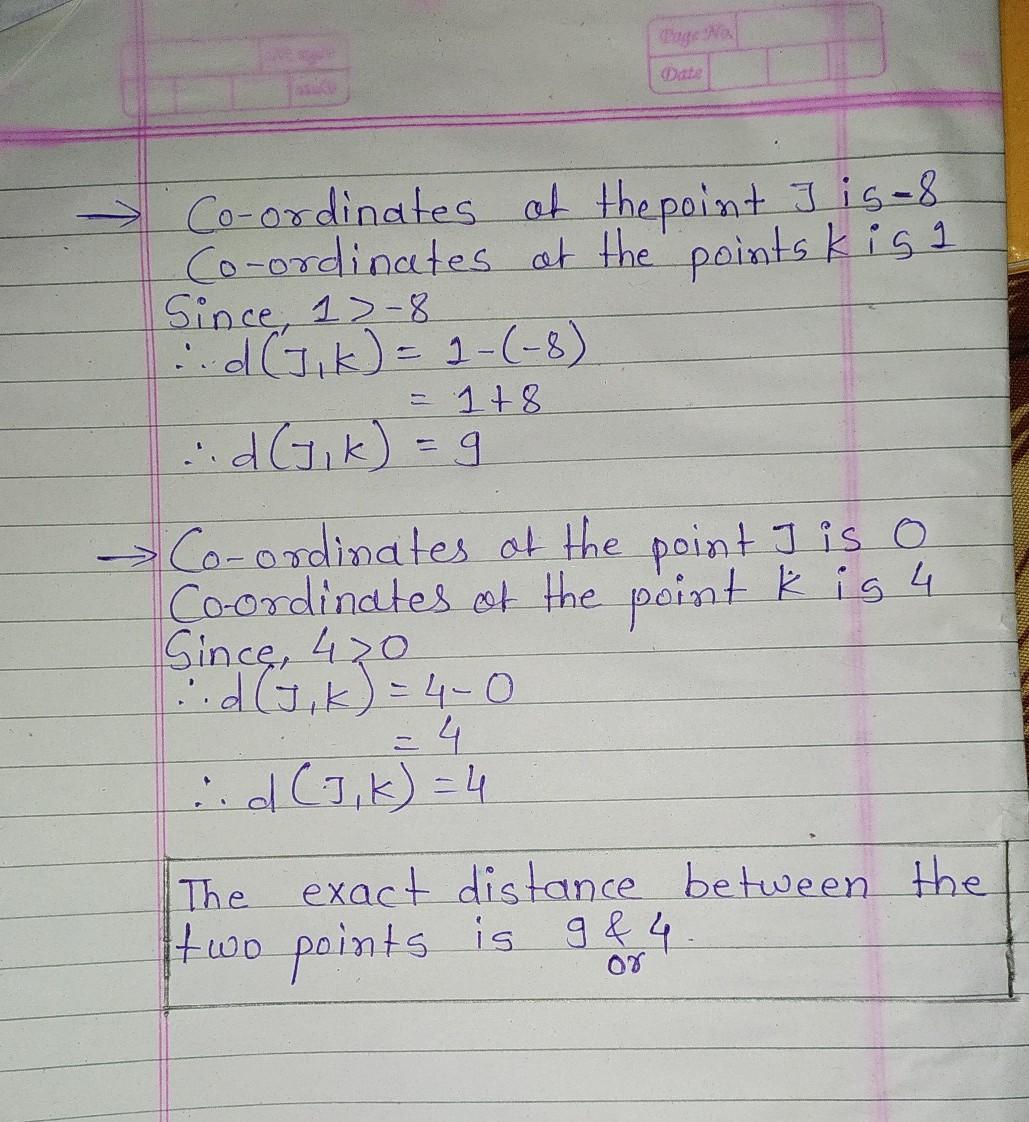 Page No.
Date
→ Co-ordinates at the point J is -8
Co-ordinates at the points k is 1
Since, 1 > -8
∴ d(J,k) = 1-(-8)
= 1+8
∴ d(J,k) = 9
→ Co-ordinates at the point J is 0
Co-ordinates at the point k is 4
Since, 4 > 0
∴ d(J,k) = 4-0
= 4
∴ d(J,k) = 4
The exact distance between the
two points is 9 & 4.
or